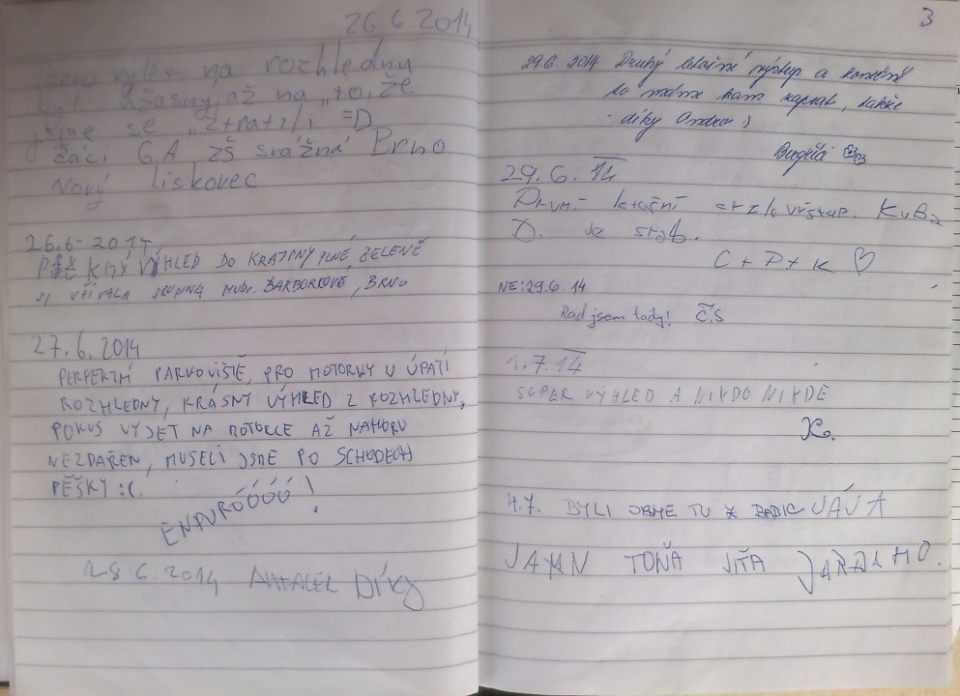 26.6.2014
výlet na rozhlednu
byl úžasný, až na „to, že
jsme se „ztratili =D
žáci 6.A, ZŠ Svážná Brno
Nový Lískovec
26.6-2014
VÝHLED DO KRAJINY PLNÉ ZELENĚ
SI UŽÍVALA MUDr. BARBORKOVÉ, BRNO
27.6.2014
PERFEKTNÍ PARKOVIŠTĚ PRO MOTORKY U ÚPATÍ
ROZHLEDNY, KRÁSNÝ VÝHLED Z ROZHLEDNY,
POKUS VYJET NA MOTORCE AŽ NAHORU
NEZDAŘEN, MUSELI JSME PO SCHODECH
PĚŠKY :(.
ENDURÓÓÓÓ!
28 6.2014 Díky
3
29.6. 2014 Druhý letošní výstup a konečně
to máme kam napsat, takže
díky
29.6.14
letošní výstup.
D.
C + P + K ♡
NE: 29.6.14
Rad jsem tady! Č.S
1.7.14
SUPER VÝHLED A NIKDO NIKDE
4.7. BYLI JSME TU Z JÁJA
TOŇA JITA